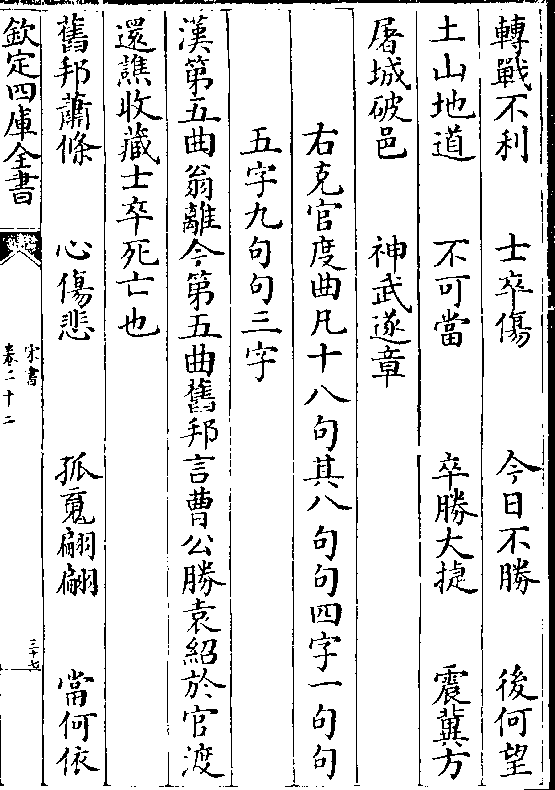 轉戰不利　士卒傷　今日不勝　後何望
土山地道　不可當　卒勝大捷　震冀方
屠城破邑　神武遂章
右克官度曲凡十八句其八句句四字一句句
五字九句句三字
漢第五曲翁離今第五曲舊邦言曹公勝袁紹於官渡
還譙收藏士卒死亡也
舊邦蕭條　心傷悲　孤䰟翩翩　當何依
欽定四庫全書
宋書
卷二十二
三十七